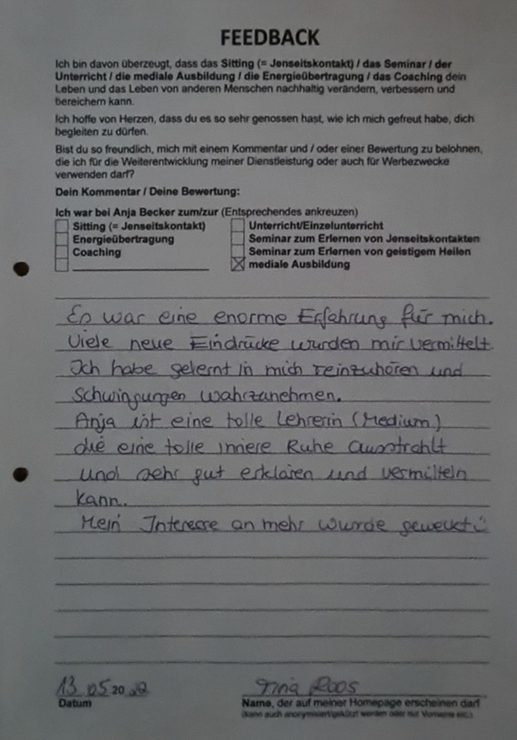 FEEDBACK
Ich bin davon überzeugt, dass das Sitting (= Jenseitskontakt) / das Seminar / der
Unterricht / die mediale Ausbildung / die Energieübertragung / das Coaching dein
Leben und das Leben von anderen Menschen nachhaltig verändern, verbessern und
bereichern kann.
Ich hoffe von Herzen, dass du es so sehr genossen hast, wie ich mich gefreut habe, dich
begleiten zu dürfen.
Bist du so freundlich, mich mit einem Kommentar und / oder einer Bewertung zu belohnen,
die ich für die Weiterentwicklung meiner Dienstleistung oder auch für Werbezwecke
verwenden darf?
Dein Kommentar / Deine Bewertung:
Ich war bei Anja Becker zum/zur (Entsprechendes ankreuzen)
Sitting (= Jenseitskontakt)
Energieübertragung
Coaching
Unterricht/Einzelunterricht
Seminar zum Erlernen von Jenseitskontakten
Seminar zum Erlernen von geistigem Heilen
mediale Ausbildung
Es war eine enorme Erfahrung für mich.
Viele neue Eindrücke wurden mir vermittelt
Ich habe gelernt in mich reinzuhören und
Schwingungen wahrzunehmen.
Anja ist eine tolle Lehrerin (Medium)
die eine tolle innere Ruhe ausstrahlt
und sehr gut erklären und vermitteln
kann.
Mein Interesse an mehr wurde geweckt
13.05.2022
Datum
Tina Roos
Name, der auf meiner Homepage erscheinen darf
(kann auch anonymisiert/gekürzt werden oder nur Vorname etc.)